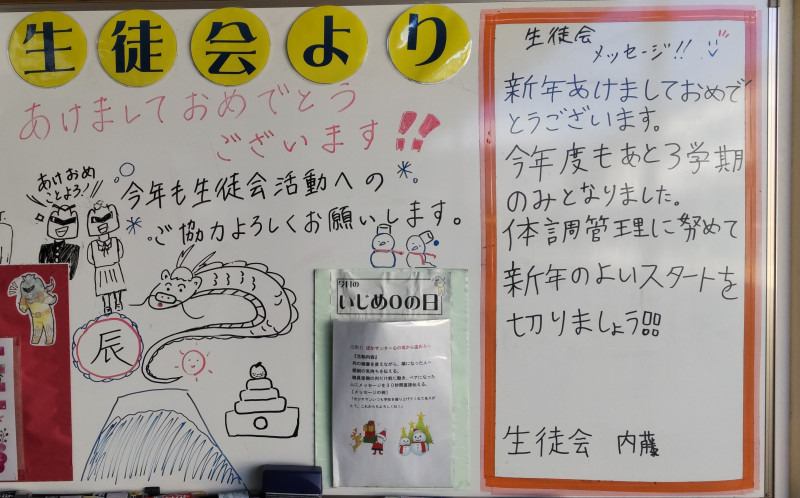 生徒会より
あけましておめでとう
ございます!!
あけおめ
ことよろ!
今年も生徒会活動への
ご協力よろしくお願いします。
辰
今月の
いじめ0の日
【活動内容】
【メッセージの例】
生徒会
メッセージ!!
新年あけましておめで
とうございます。
今年度もあと3学期
のみとなりました。
体調管理に努めて
新年のよいスタートを
切りましょう!!
生徒会 内藤